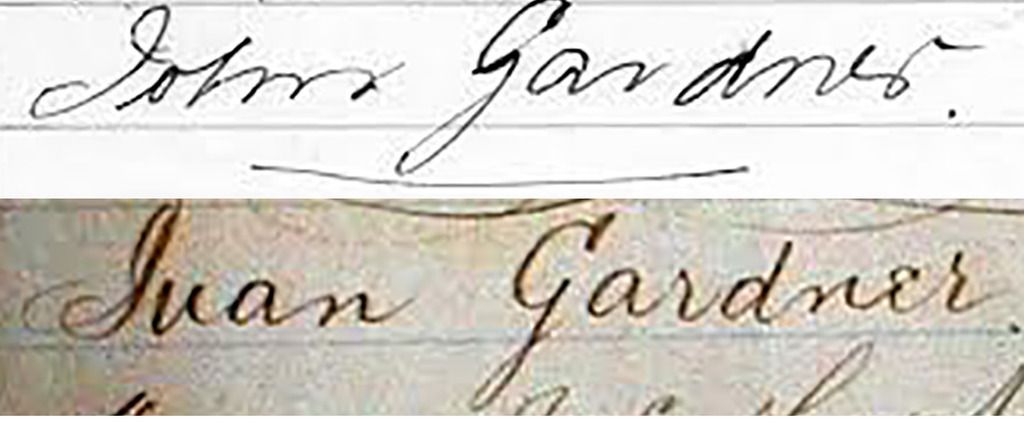 John Gardner.
Juan Gardner.